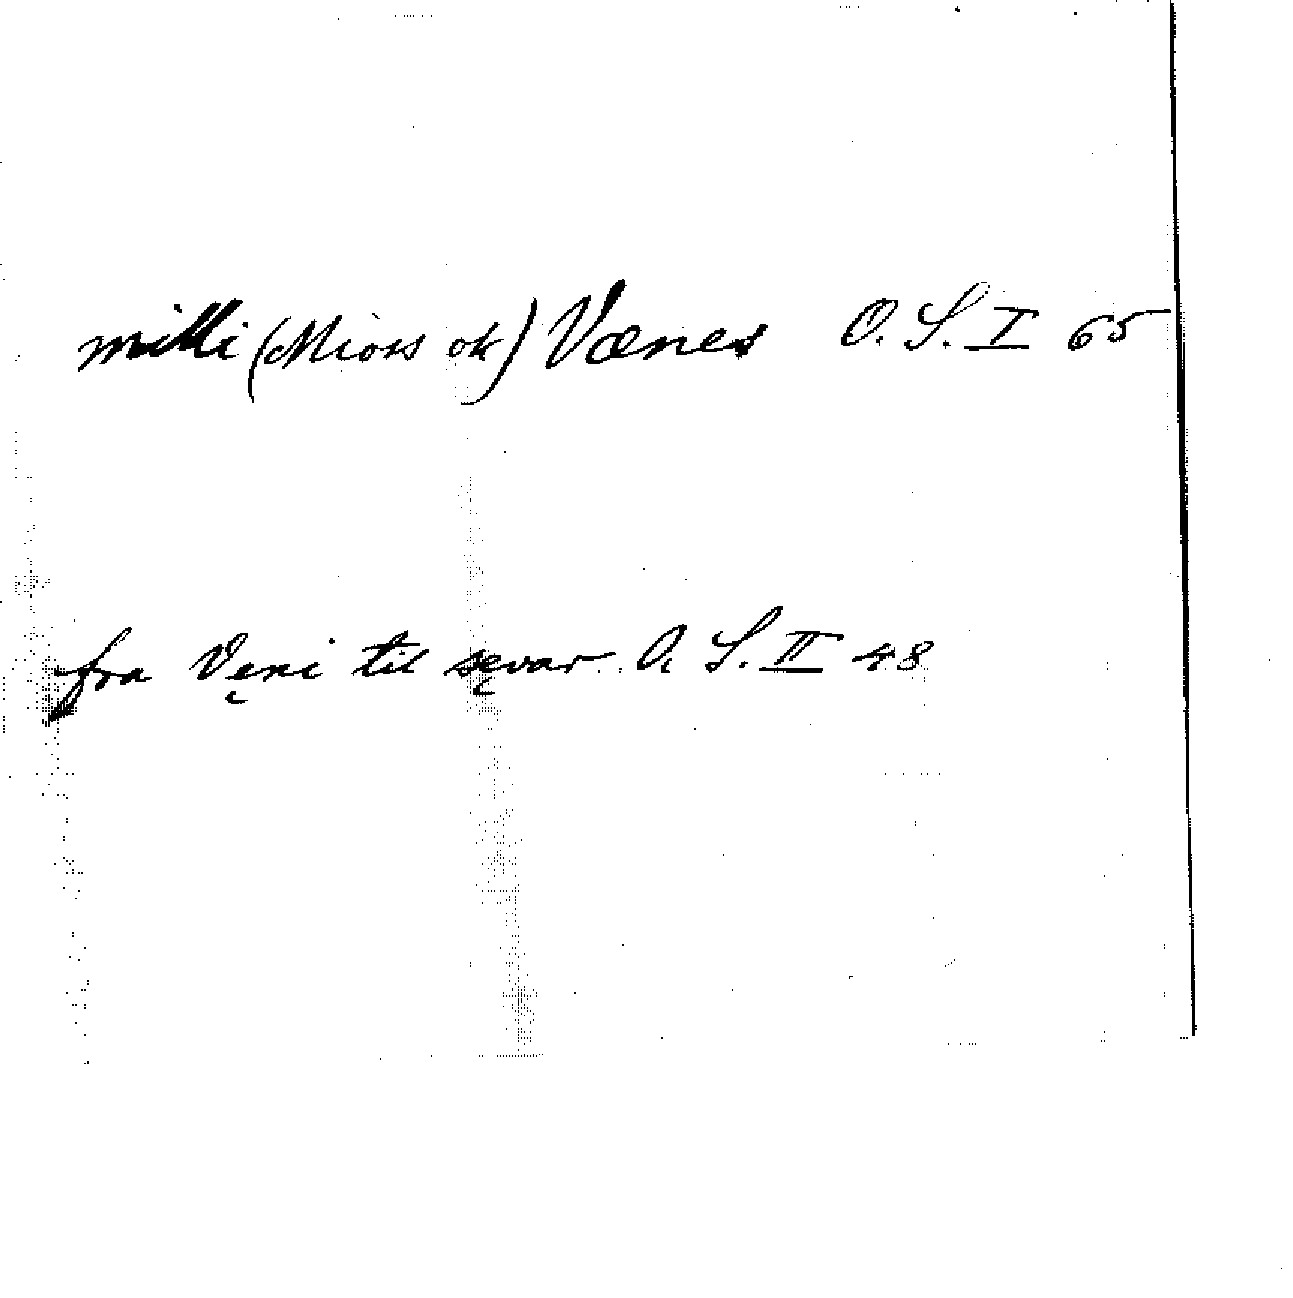 milli (Miors ok) Vænes O. S. I 65
fra Vęni til sęvar O. S. II 48